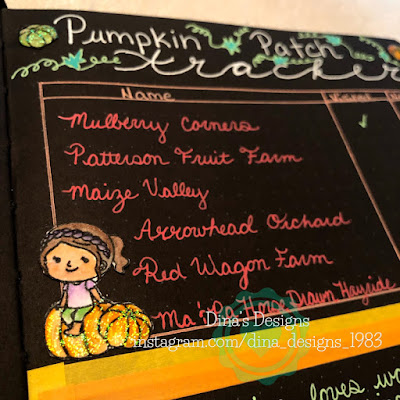 Pumpkin Patch
Tracker
Name
Mulberry Corners
Patterson Fruit Farm
Maize Valley
Arrowhead Orchard
Red Wagon Farm
Ma & Pa Horse Drawn Hayride
Dina's Designs
instagram.com/dina_designs_1983
loves